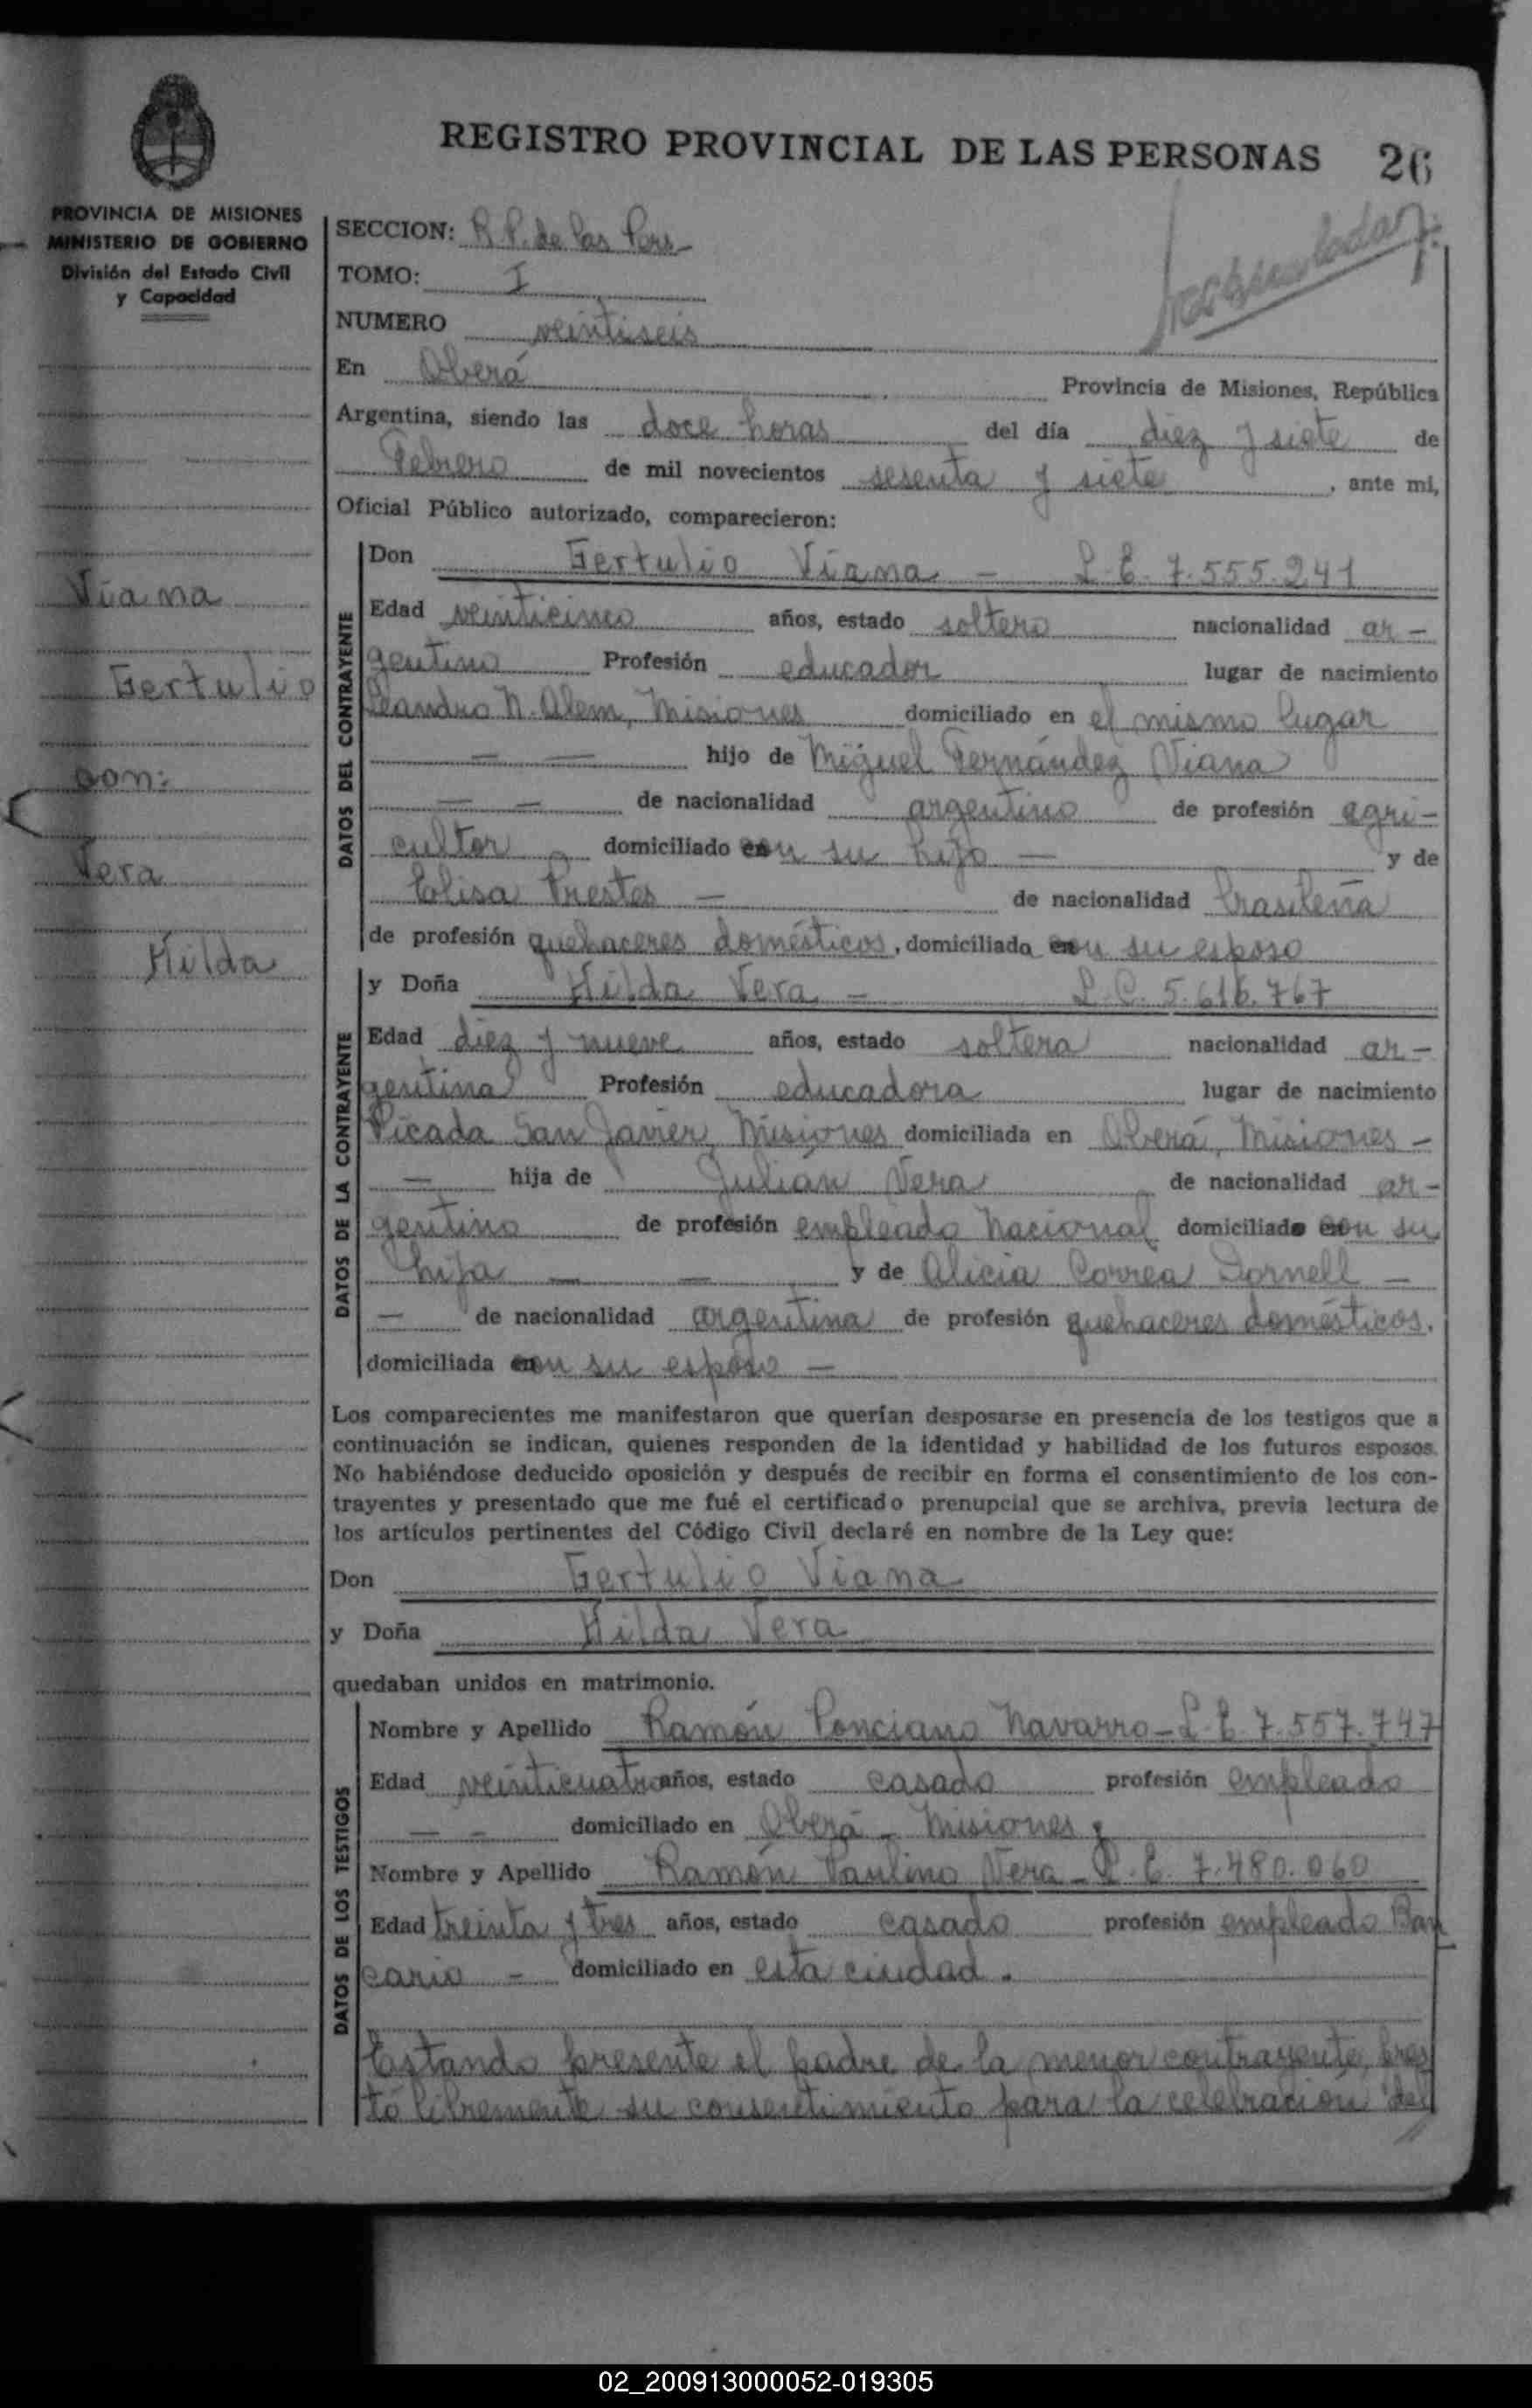 REGISTRO PROVINCIAL DE LAS PERSONAS 26
PROVINCIA DE MISIONES
MINISTERIO DE GOBIERNO
División del Estado Civil
y Capacidad
Viana
Gertulio
con:
Vera
Hilda
SECCION: R.P. de las Pers
TOMO: I
NUMERO veintiseis
En Oberá Provincia de Misiones, República
Argentina, siendo las doce horas del día diez y siete de
Febrero de mil novecientos sesenta y siete, ante mi,
Oficial Público autorizado, comparecieron:
DATOS DEL CONTRAYENTE
Don Gertulio Viana - L.E. 7.555.241
Edad veinticinco años, estado soltero nacionalidad ar-
gentino Profesión educador lugar de nacimiento
Leandro N. Alem, Misiones domiciliado en el mismo lugar
— — hijo de Miguel Fernández Viana
— — de nacionalidad argentino de profesión agri-
cultor domiciliado con su hijo — y de
Elisa Prestes — de nacionalidad brasileña
de profesión quehaceres domésticos, domiciliada con su esposo
DATOS DE LA CONTRAYENTE
y Doña Hilda Vera - L.C. 5.616.767
Edad diez y nueve años, estado soltera nacionalidad ar-
gentina Profesión educadora lugar de nacimiento
Picada San Javier, Misiones domiciliada en Oberá, Misiones -
— hija de Julián Vera de nacionalidad ar-
gentino de profesión empleado Nacional domiciliado con su
hija — — y de Alicia Correa Dornell —
— de nacionalidad argentina de profesión quehaceres domésticos.
domiciliada con su esposo —
Los comparecientes me manifestaron que querían desposarse en presencia de los testigos que a
continuación se indican, quienes responden de la identidad y habilidad de los futuros esposos.
No habiéndose deducido oposición y después de recibir en forma el consentimiento de los con-
trayentes y presentado que me fué el certificado prenupcial que se archiva, previa lectura de
los artículos pertinentes del Código Civil declaré en nombre de la Ley que:
Don Gertulio Viana
y Doña Hilda Vera
quedaban unidos en matrimonio.
DATOS DE LOS TESTIGOS
Nombre y Apellido Ramón Ponciano Navarro - L.E. 7.557.747
Edad veinticuatro años, estado casado profesión empleado
— - domiciliado en Oberá - Misiones y
Nombre y Apellido Ramón Paulino Vera - L.E. 7.480.060
Edad treinta y tres años, estado casado profesión empleado Ban
cario - domiciliado en esta ciudad.
Estando presente el padre de la menor contrayente, pres
tó libremente su consentimiento para la celebración del
02_200913000052-019305